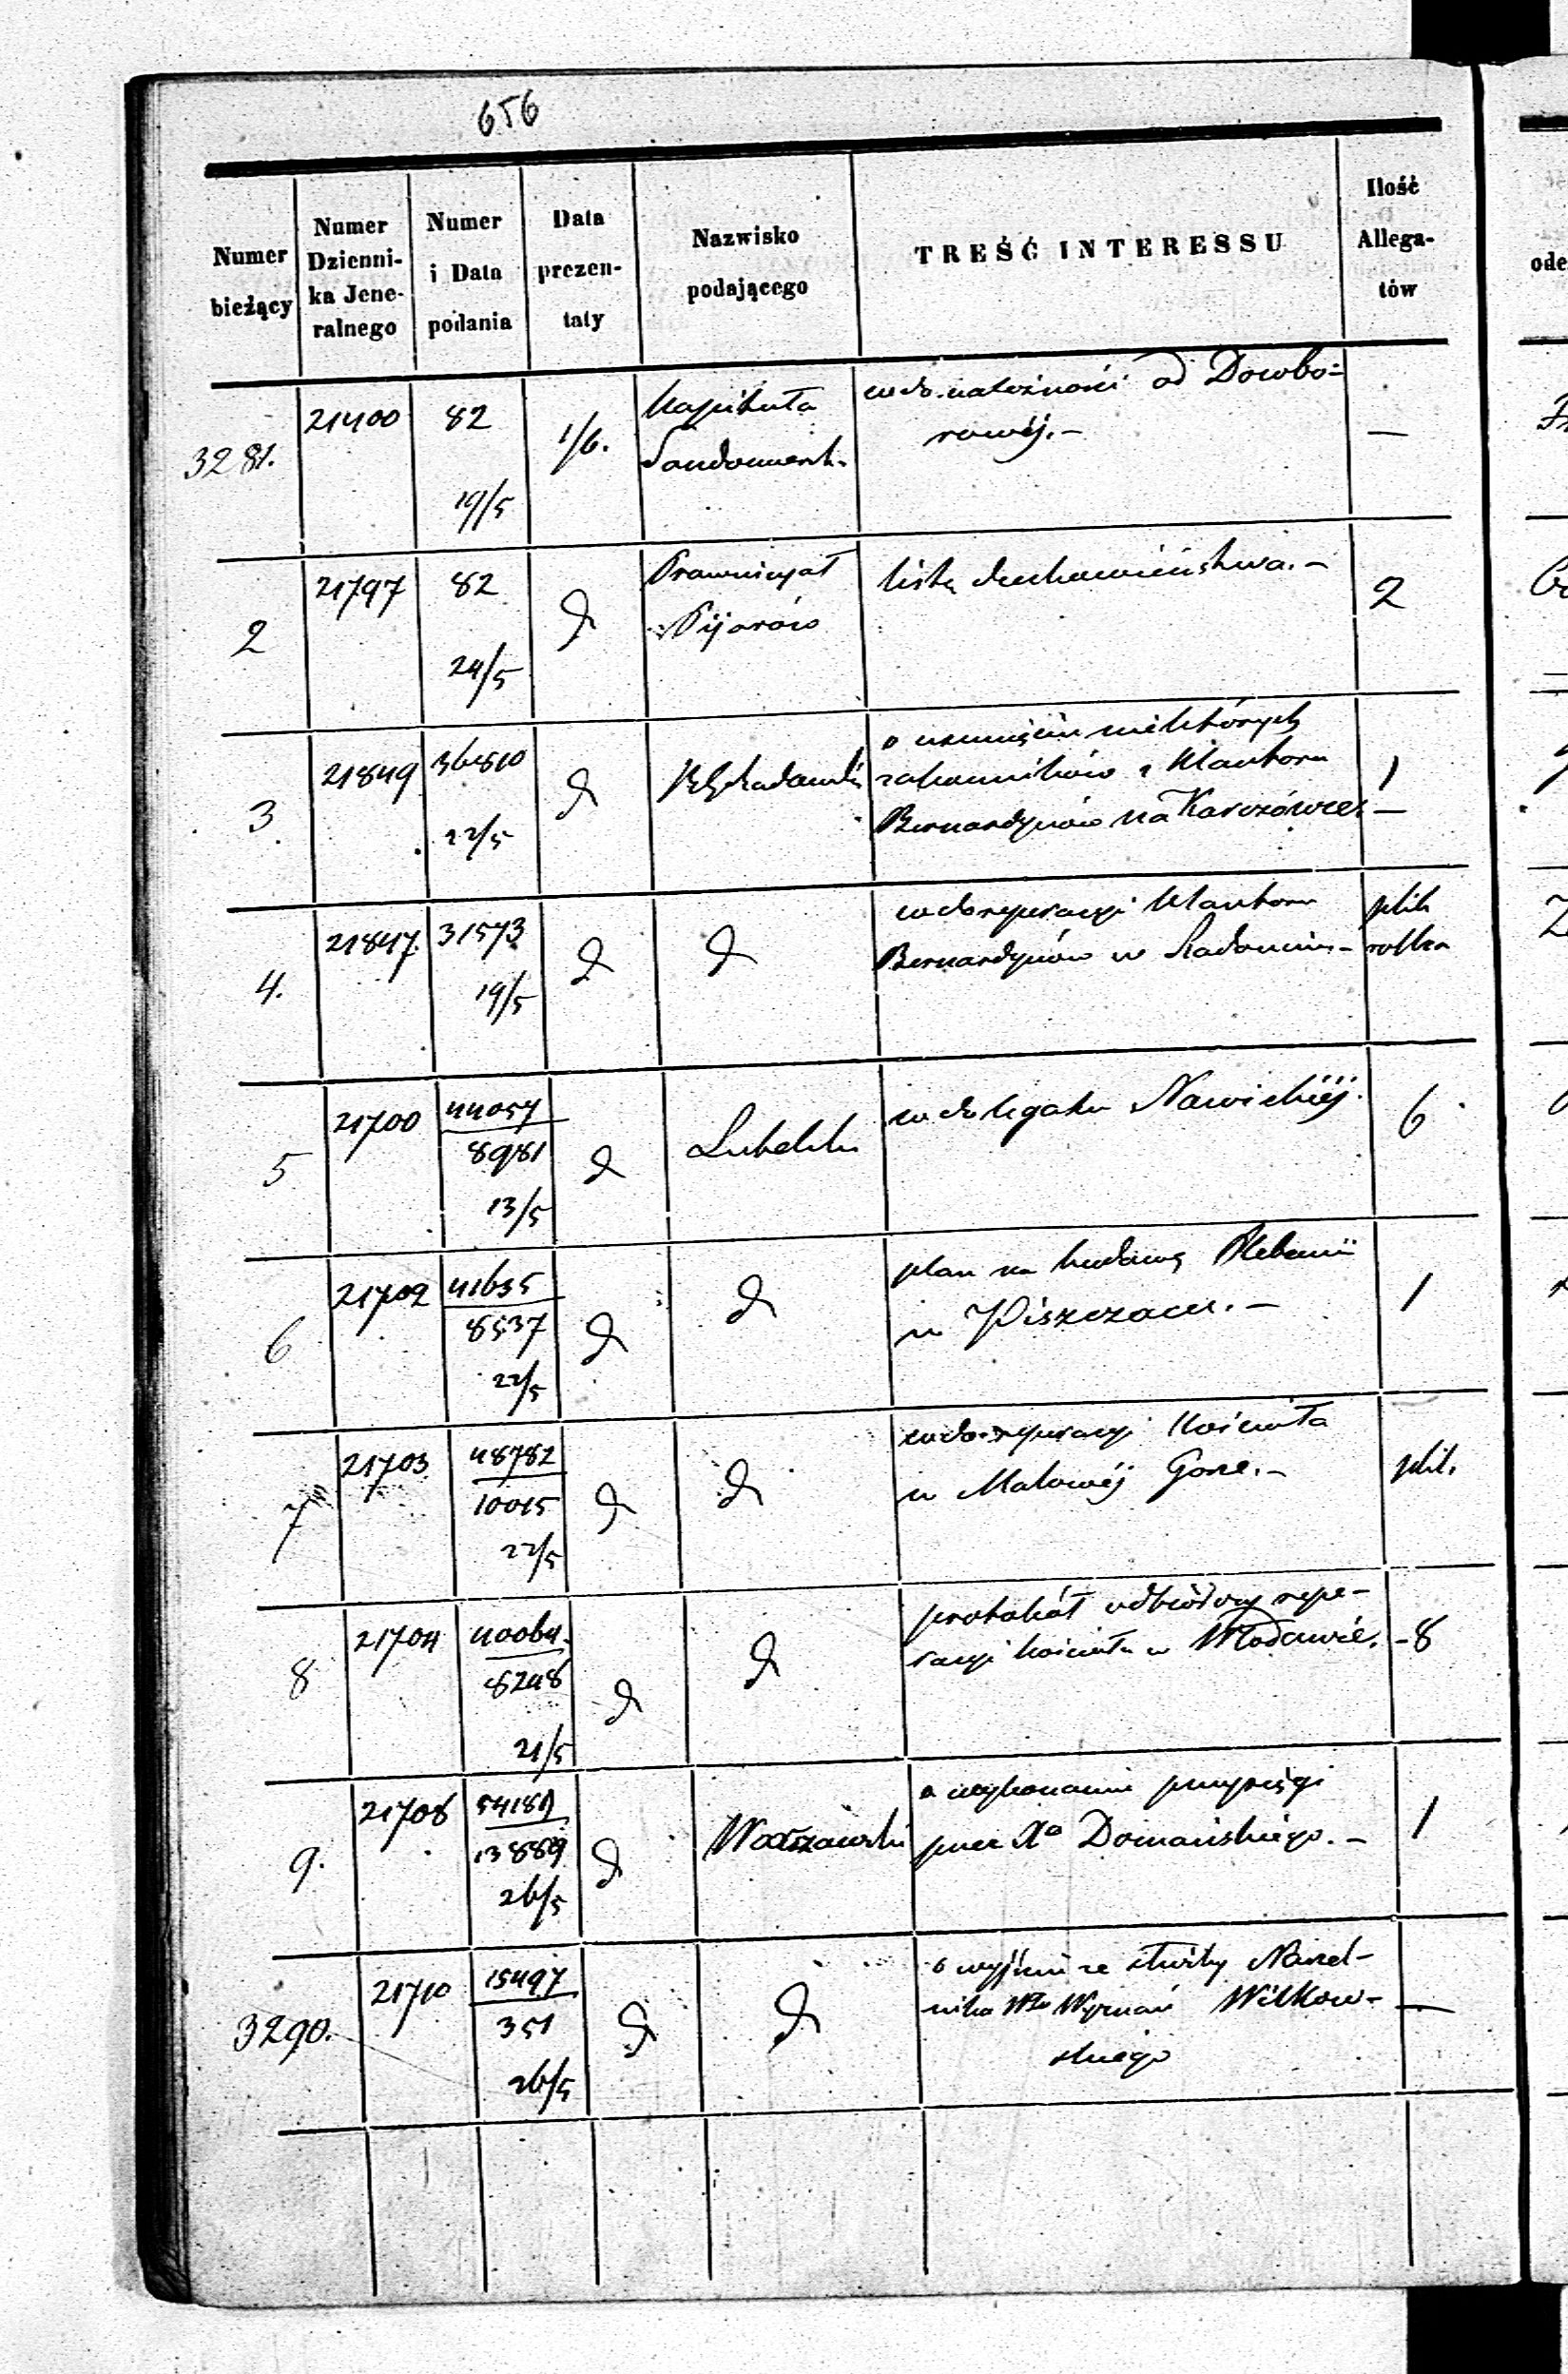 656
Numer bieżący
Numer Dzienni-ka Jene-ralnego
Numer i Data podania
Data prezen-taty
Nazwisko podającego
TREŚĆ INTERESSU
Ilość Allega-tów
3281. 21400 82 19/5 1/6. Kapituła Sandomiersk.
wdo. należności od Dowbo=
rowéj.– —
2 21797 82 24/5 d
Pijarów
listę duchowieństwa.– 2
3 21849 36810 22/5 d
o usunięciu niektórych
zakonników z Klasztoru
Bernardynów na Karczówce. – 1
4. 21847. 31573 19/5 d d
wdo reperacyi Klasztoru
Bernardynów w Radomiu –
plik
5 21700 44057 8981 13/5 d Lubelski
wdo legatu Nawickiéj. 6
6 21702 41635 8537 22/5 d d
plan na budowę Plebanii
w Piszczacu. – 1
7 21703 48782 10015 22/5 d d
wdo. reperacyi Kościoła
w Malowéj Górze. – plik.
8 21704 40064. 8248 21/5 d d
protokół odbiorczy repe-
racyi kościoła w Włodawie. – 8
9. 21708 54181 13889 26/5 d Warszawski
o wykonanie przysięgi
przez Xa Domańskiego. – 1
3290. 21710 15497 351 26/5 d d
o wyjściu ze służby Naczel-
nika Wyznań Witkow-
skiego —